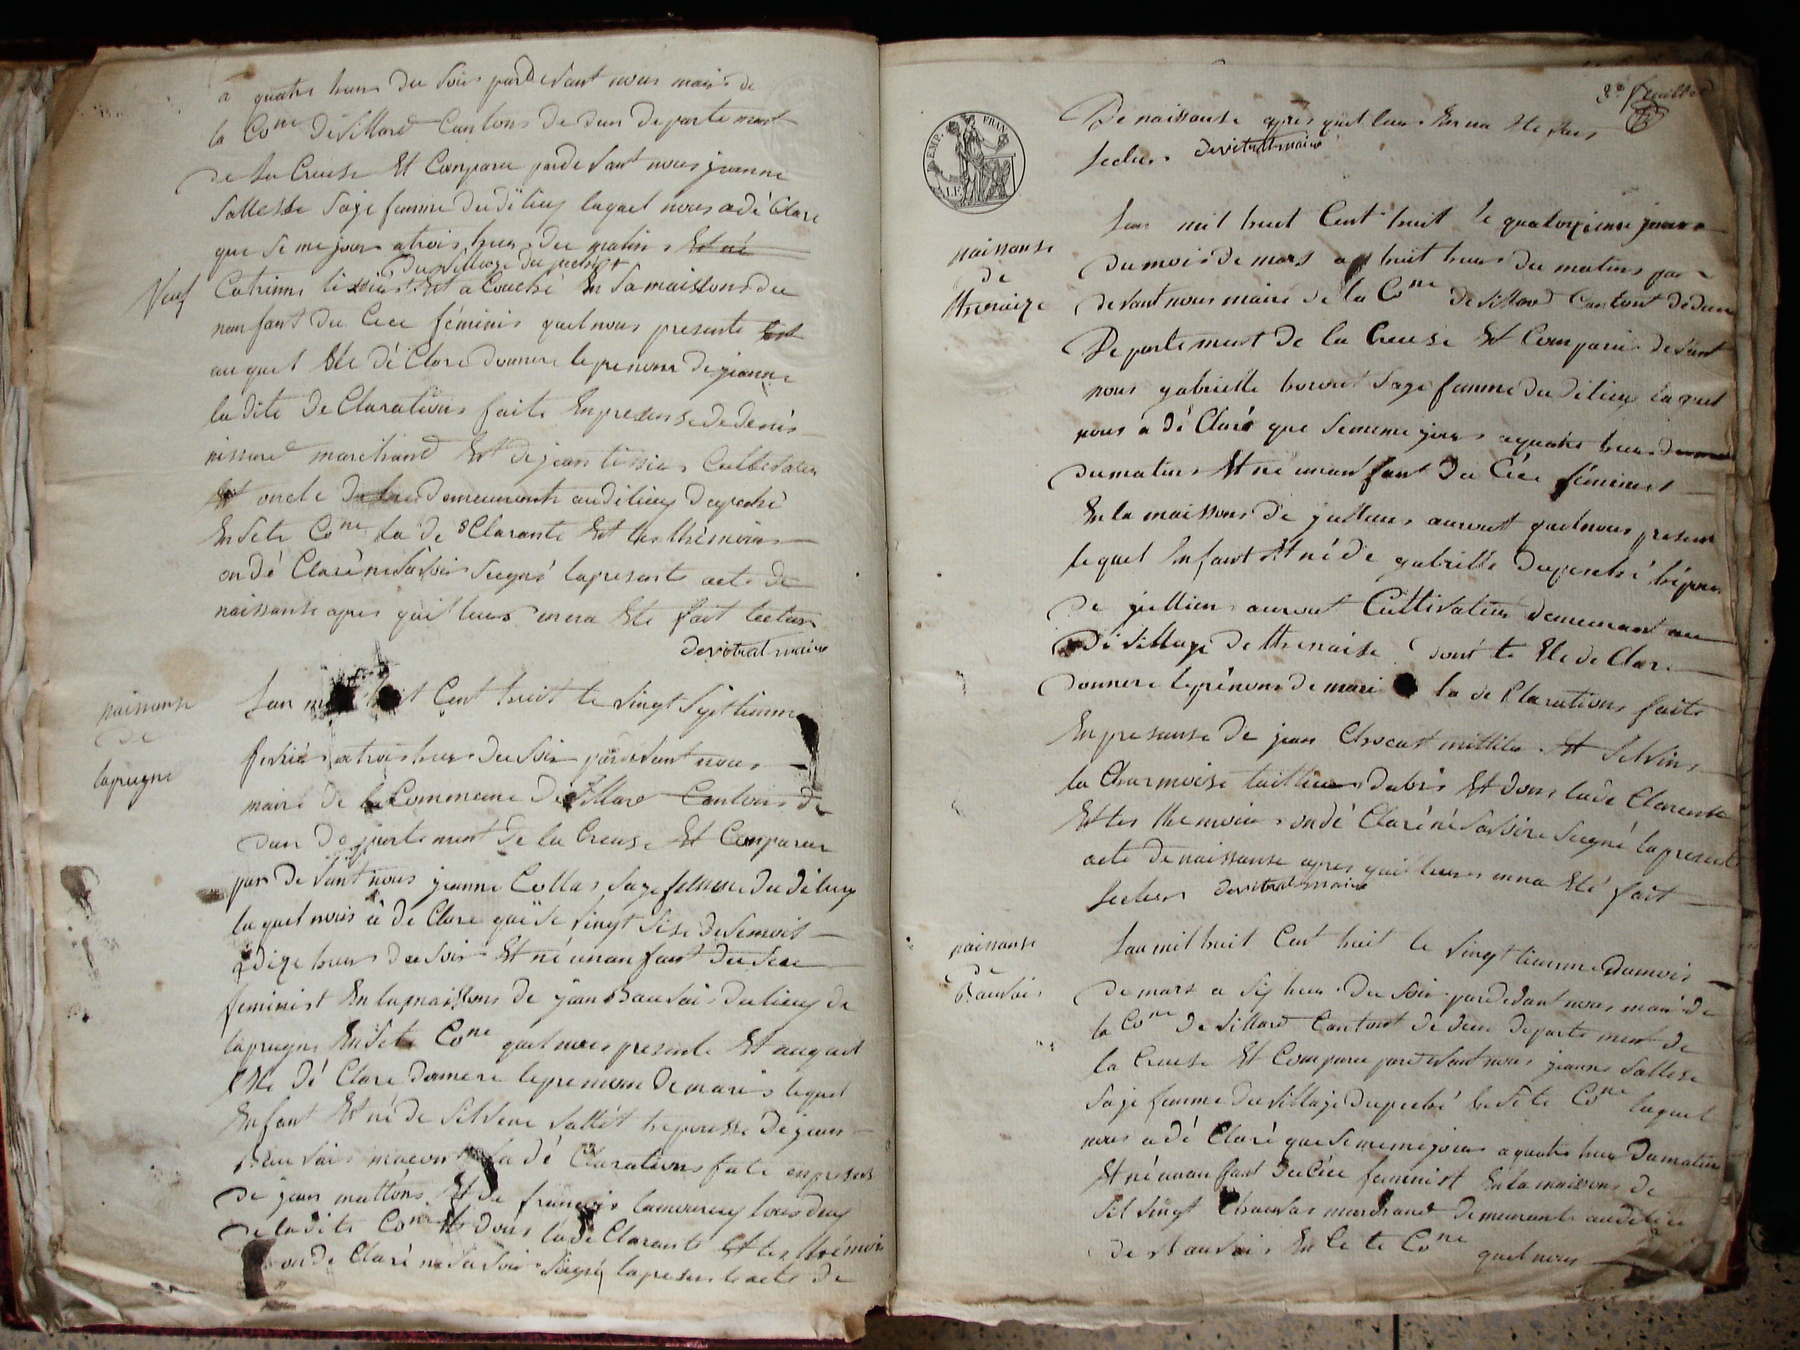 à quatre heurs du soir pardevant nous maire de
la Cone de villard Cantons de dun departement
de la Creuse Et Compare pardevant nous jeanne
Sallesse sage femme du di lieu laquel nous a dé Clare
que se me jour a trois heurs du matin Est né
du village du peché
Catrinne tissier Est a Couché En sa maisons du
Neuf
nanfant du Cece féminis quel nous presente
au quel Ele dé Clare donnere le prenom de jeanne
la dite de Clarations faite En presense de denis
missard marchand Et de jean tissier Cultivateur
Et oncle demeurants au di lieu du peché
En sete Cone la de Clarante Et les thémoins
on dé Claré ne savoir seigné la presente acte de
naissanse apres qui leurs enna Ete fait lecture
devotrat maire
naissanse
de
laprugne
Lan mil huit Cent huit le vingt septieme
fevrié a trois heurs du soir pardevant nous
maire de la Commeune de villard Cantons de
dun departement de la Creuse Et Comparue
par devant nous jeanne Collas sage femme du di lieu
la quel nous à de Clare que le vingt sise de se mois
a dize heurs du soir Et né unanfant du sece
feminist En la maisons de jean Bauvais du lieu de
laprugne En sete Cone quel nous presente Et au quel
Ele dé Clare donnere le prenom de marie lequel
Enfant Et né de silvene Sallét he pousse de jean
Beauvais macon la dé Clarations faite en presens
de jean mattons Et de françois lamoureu tous deu
de la dite Cone Et dons la de Clarante Et les thémoin
on de Claré ne savoir seigné la presente acte de
3e feuillet
De naissanse après qui leurs En na Ete fait
lecture devotrat maire
naissanse
de
thenaize
Lan mil huit Cent huit le quatorzieme jour
du mois de mars a huit heurs du matins par
devant nous maire de la Cone de villard Cantont de dun
Departement de la Creuse Et Comparue devant
nous gabrielle sage femme du di lieu laquel
nous a dé Claré que se meme jour a quatre heurs
du matins Et né unanfant du Céce féminist
En la maisons de jullien auroat quel nous presente
lequel Enfant Et né de gabrielle duperché hépouse
de jullien auroat Cultivateur demeurant au
di village de thenaise dont te Ele de Clare
donnere le prénom de marie la de Clarations faite
En presanse de jean Chocat Et silvins
la Charmoise tailleur dabis Et dons la de Clarente
Et les themoins on dé Claré ne savoire seigné la presente
acte de naissanse apres qui leurs enna Eté fait
lecture devotrat maire
naissanse
de
Bauvais
Lan mil huit Cent huit le vingtieme du mois
de mars a sis heur du soir pardevant nous maire de
la Cone de villard Cantont de dun departement de
la Creuse Et Comparue pardevant nous jeanne Sallese
sage femme du village du peché En sete Cone laquel
nous a dé Claré que se meme jour a quatre heur du matin
Et né unanfant du Céce feminist En la maisons de
sil vingt Chauvas marchand demeurante au di lieu
de Bauvais En Cete Cone quel nous